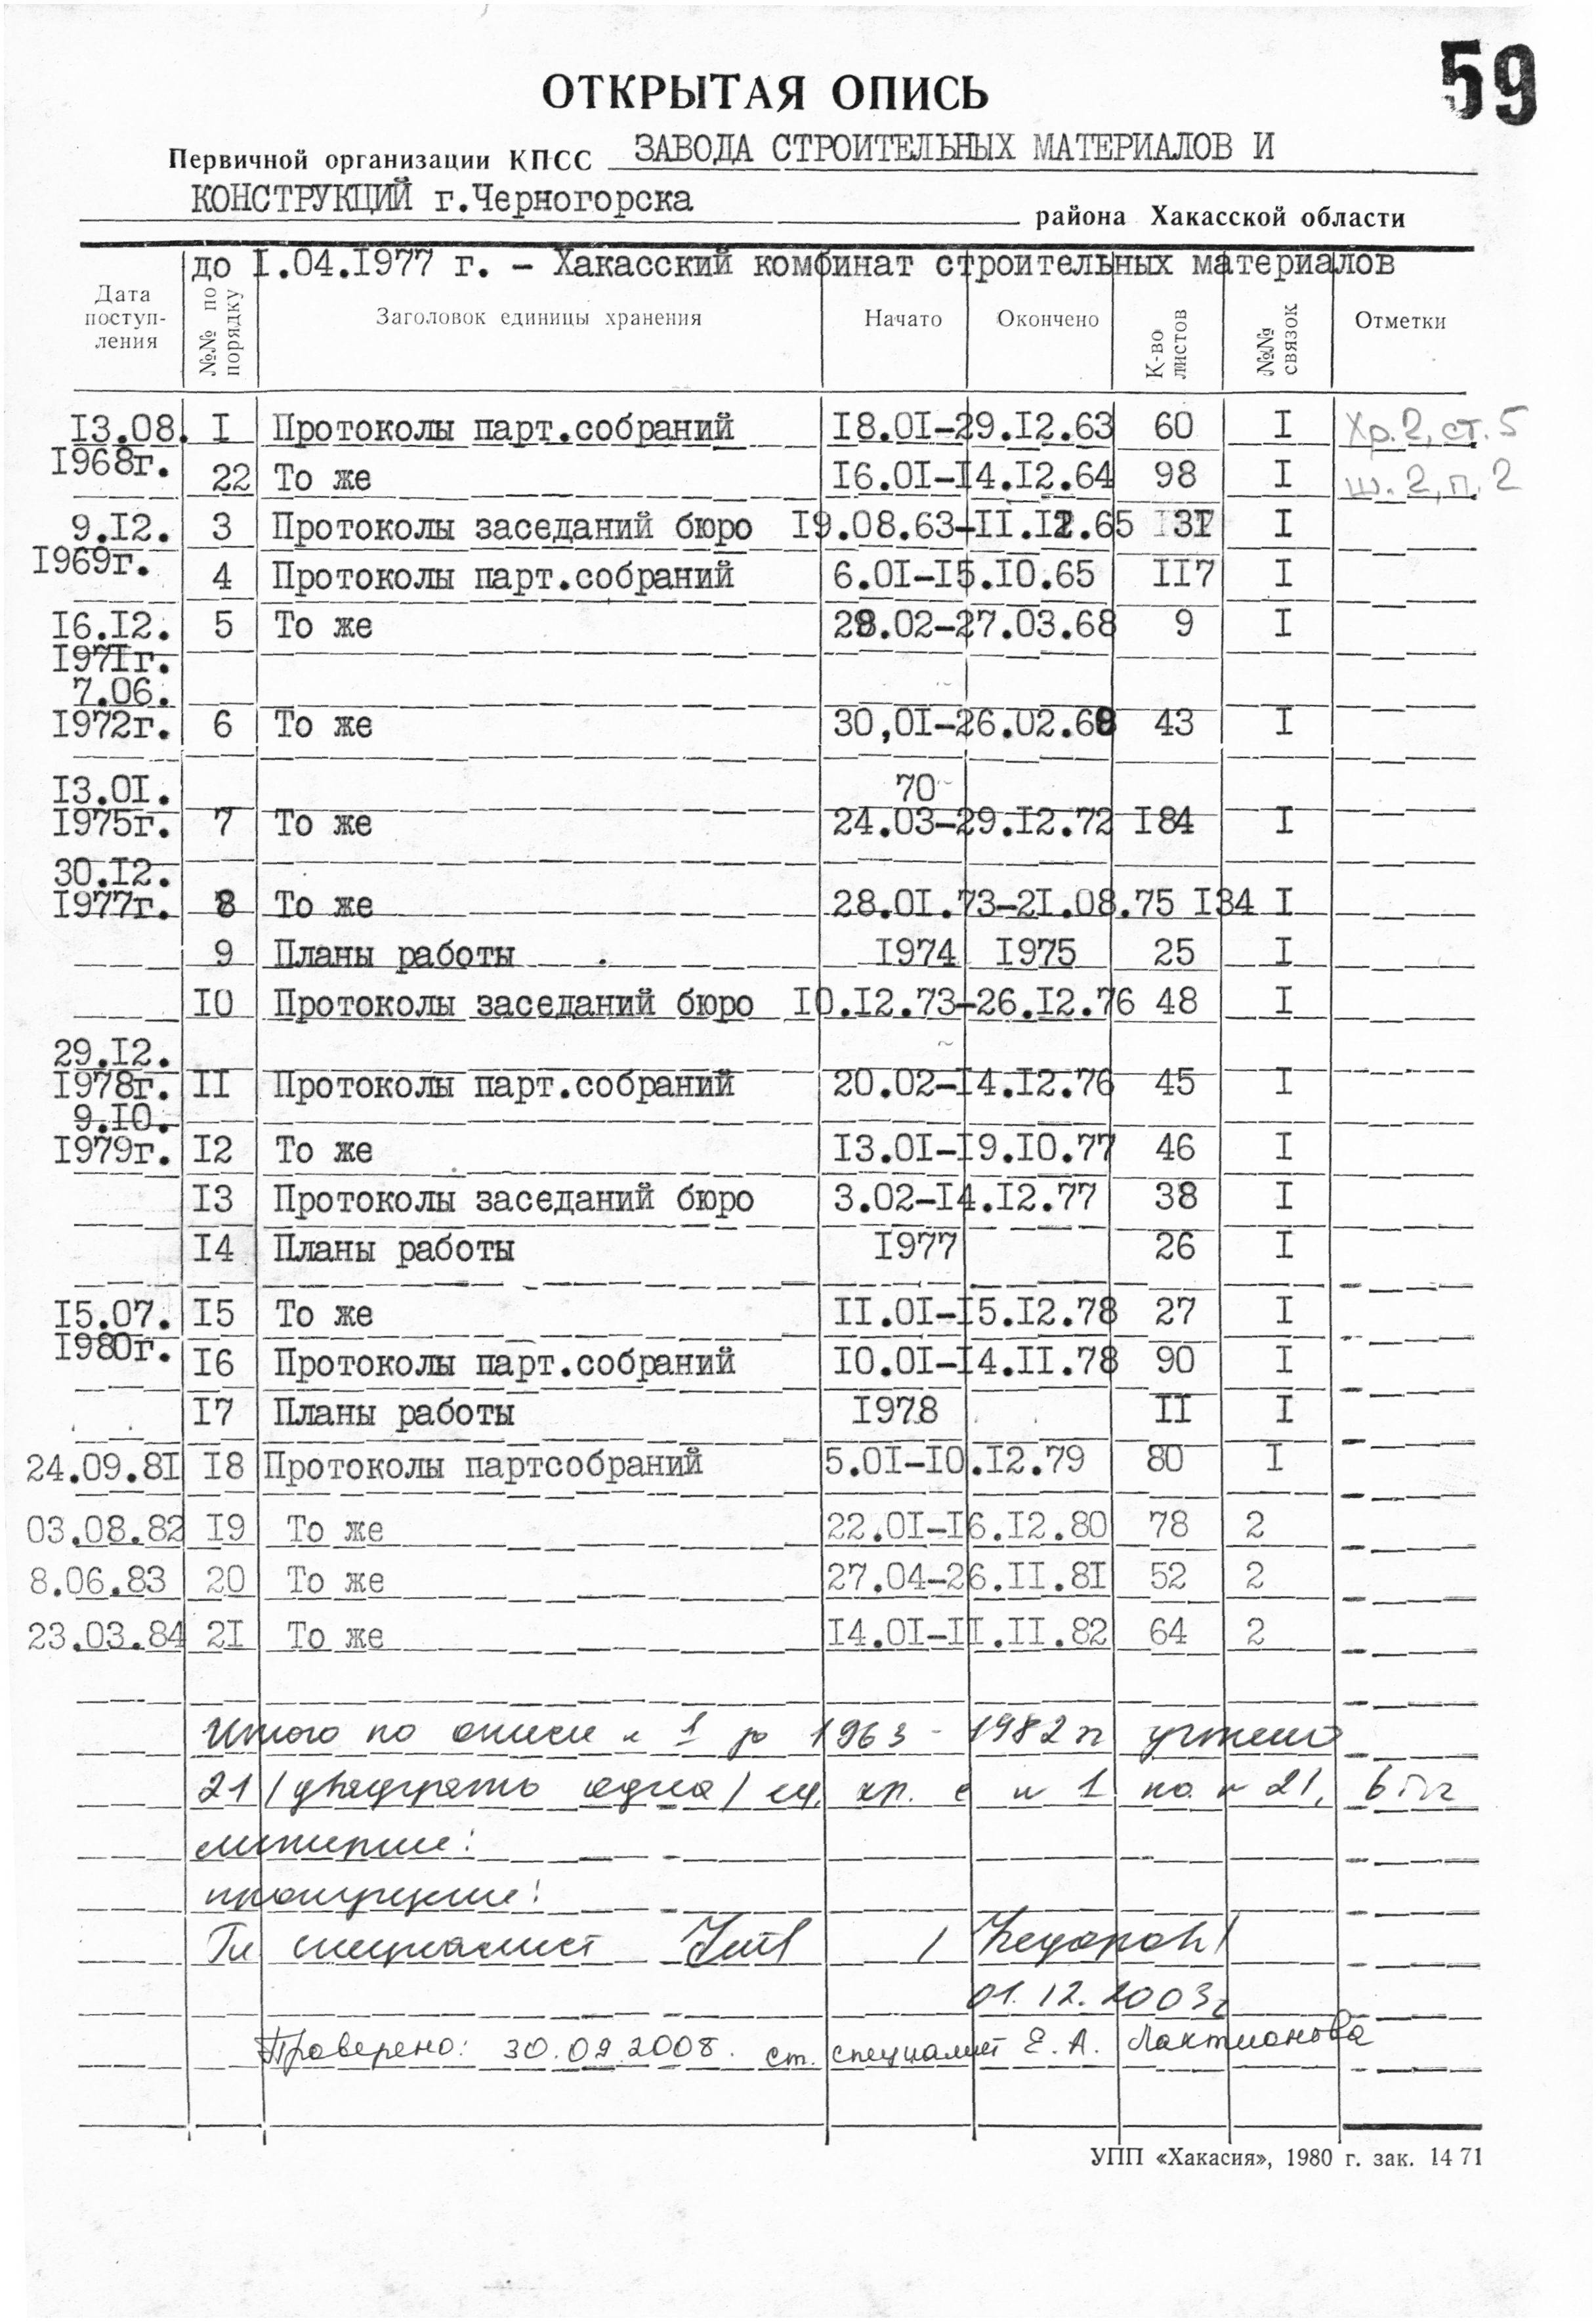 59
ОТКРЫТАЯ ОПИСЬ
Первичной организации КПСС ЗАВОДА СТРОИТЕЛЬНЫХ МАТЕРИАЛОВ И
КОНСТРУКЦИЙ г.Черногорска района Хакасской области
до I.04.I977 г. – Хакасский комбинат строительных материалов
Дата поступ-ления №№ по порядку Заголовок единицы хранения Начато Окончено К-во листов №№ связок Отметки
I3.08. I Протоколы парт.собраний I8.0I–29.I2.63 60 I Хр.2, ст.5
I968г. 22 То же I6.0I–I4.I2.64 98 I ш.2, п.2
9.I2. 3 Протоколы заседаний бюро I9.08.63–II.I2.65 I I
I969г. 4 Протоколы парт.собраний 6.0I–I5.I0.65 II7 I
I6.I2. 5 То же 28.02–27.03.68 9 I
I97Iг.
7.06.
I972г. 6 То же 30,0I–26.02.69 43 I
I3.0I. 70
I975г. 7 То же 24.03–29.I2.72 I84 I
30.I2.
I977г. 8 То же 28.0I.73–2I.08.75 I34 I
9 Планы работы I974 I975 25 I
I0 Протоколы заседаний бюро I0.I2.73–26.I2.76 48 I
29.I2.
I978г. II Протоколы парт.собраний 20.02–I4.I2.76 45 I
9.I0.
I979г. I2 То же I3.0I–I9.I0.77 46 I
I3 Протоколы заседаний бюро 3.02–I4.I2.77 38 I
I4 Планы работы I977 26 I
I5.07. I5 То же II.0I–I5.I2.78 27 I
I980г. I6 Протоколы парт.собраний I0.0I–I4.II.78 90 I
I7 Планы работы I978 II I
24.09.8I I8 Протоколы партсобраний 5.0I–I0.I2.79 80 I
03.08.82 I9 То же 22.0I–I6.I2.80 78 2
8.06.83 20 То же 27.04–26.II.8I 52 2
23.03.84 2I То же I4.0I–II.II.82 64 2
Итого по описи н 1 за 1963 – 1982 гг учтено
21 /двадцать одна/ ед. хр. с н 1 по н 21,
литерные:
пропущенные:
Гл специалист
01.12.2003г
Проверено: 30.09.2008. ст. специалист Е. А. Лактионова
УПП «Хакасия», 1980 г. зак. 1471